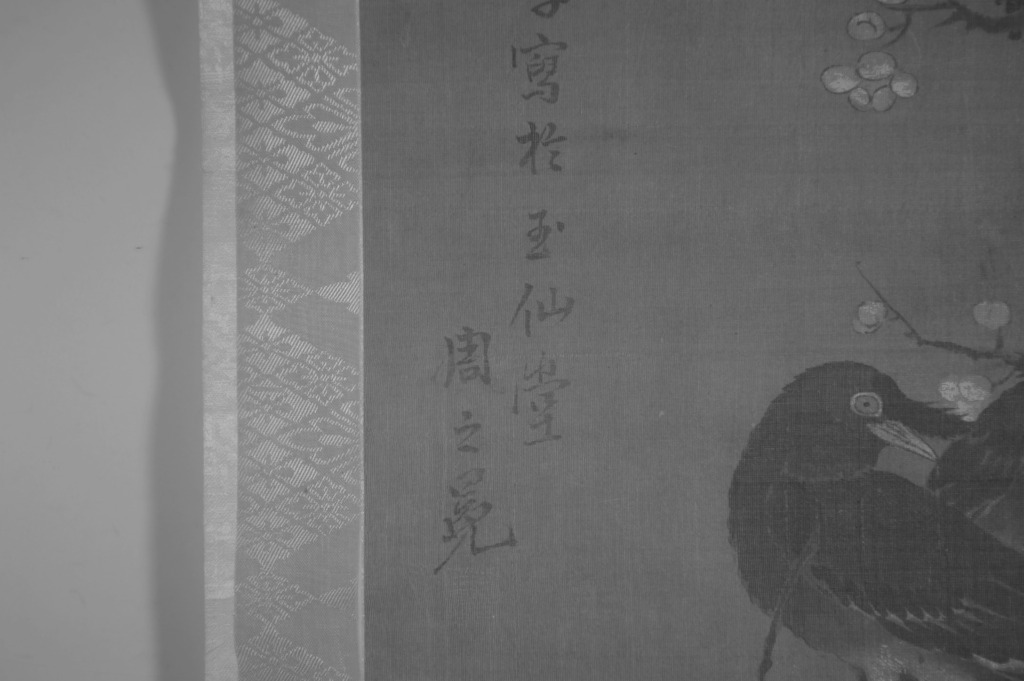 寫於玉仙堂
周之冕